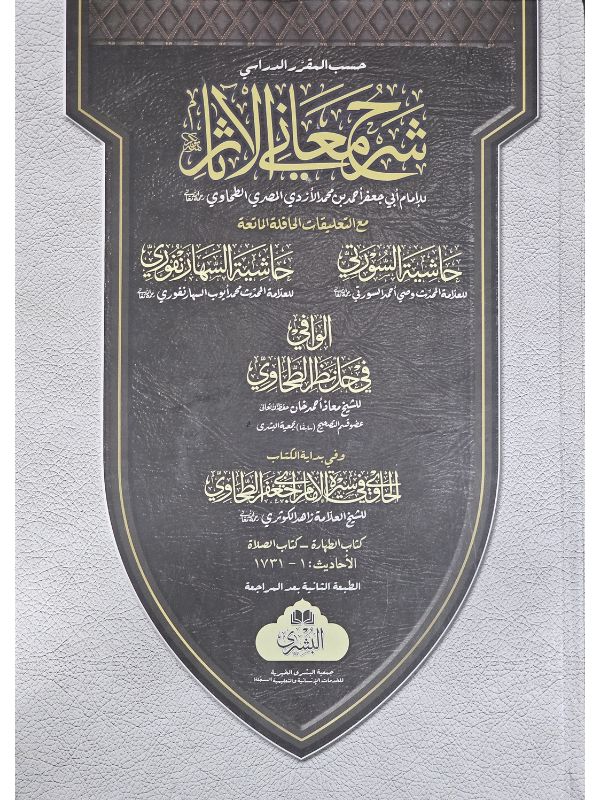 حسب المقرر الدراسي
شرح معاني الآثار
للإمام أبي جعفر أحمد بن محمد الأزدي المصري الطحاوي
مع التعليقات الحافلة الماتعة
حاشية السُّورتي
حاشية السَّهارنفوري
للعلامة المحدّث وصي أحمد السورتي
للعلامة المحدّث محمد أيوب السهارنفوري
الوافي
في حل نظر الطَّحاويّ
للشيخ معاذ أحمد خان حفظه الله تعالى
عضو قسم التصحيح (سابقا) بجمعية البشرى
وفي بداية الكتاب
الحاوي في سيرة الإمام أبي جعفر الطَّحاويّ
للشيخ العلامة زاهد الكوثري
كتاب الطهارة – كتاب الصلاة
الأحاديث: ١ - ١٧٣١
الطبعة الثانية بعد المراجعة
البُشرى
جمعية البشرى الخيرية
للخدمات الإنسانية والتعليمية (المسجّلة)